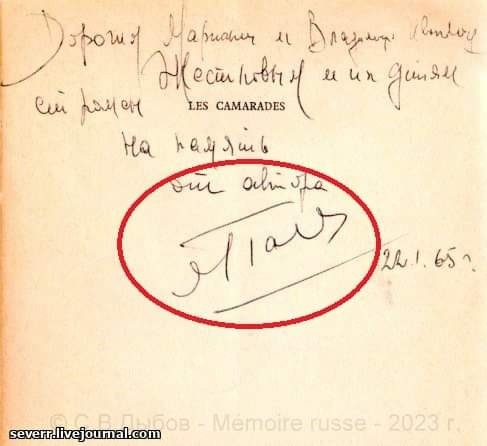 Дорогим Марианне и Владимиру
Жестковым и их детям
LES CAMARADES
на память
от автора
22.1.65 г.
© С.В.Дыбов - Mémoire russe - 2023 г.
severr.livejournal.com